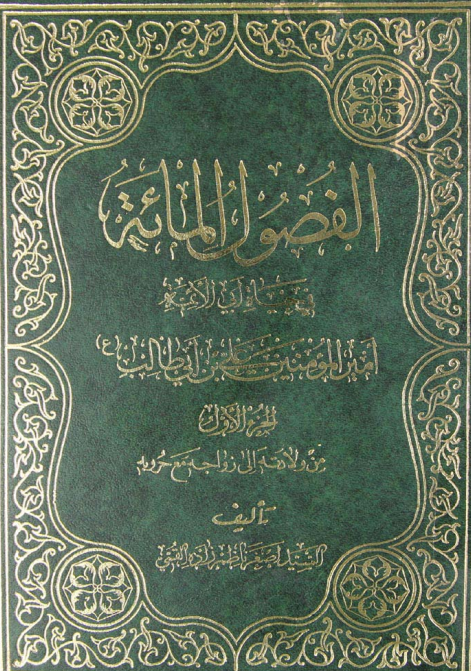 الفصول المائة
في حياة أبي الأئمة
أمير المؤمنين علي بن أبي طالب (ع)
الجزء الأول
من ولادته إلى زواجه مع حروبه
تأليف
السيد أصغر ناظم زاده القمي